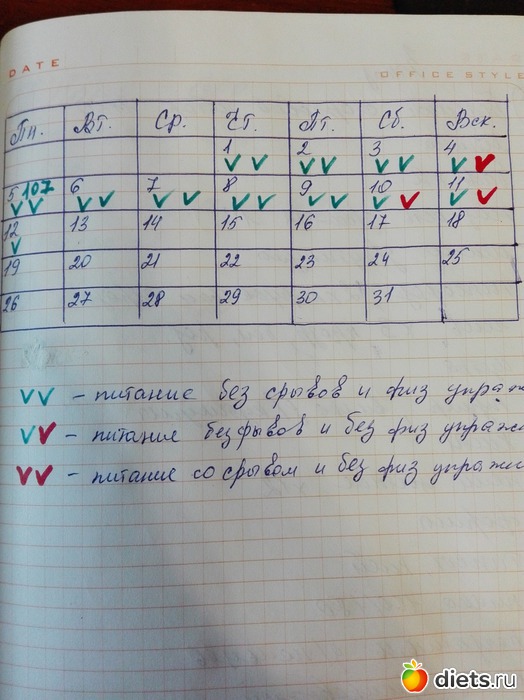 DATE
OFFICE STYLE
Пн. Вт. Ср. Чт. Пт. Сб. Вск.
1 2 3 4
5 107 6 7 8 9 10 11
12 13 14 15 16 17 18
19 20 21 22 23 24 25
26 27 28 29 30 31
vv - питание без срывов и физ упраж
vv - питание без срывов и без физ упражн
vv - питание со срывом и без физ упражн
diets.ru